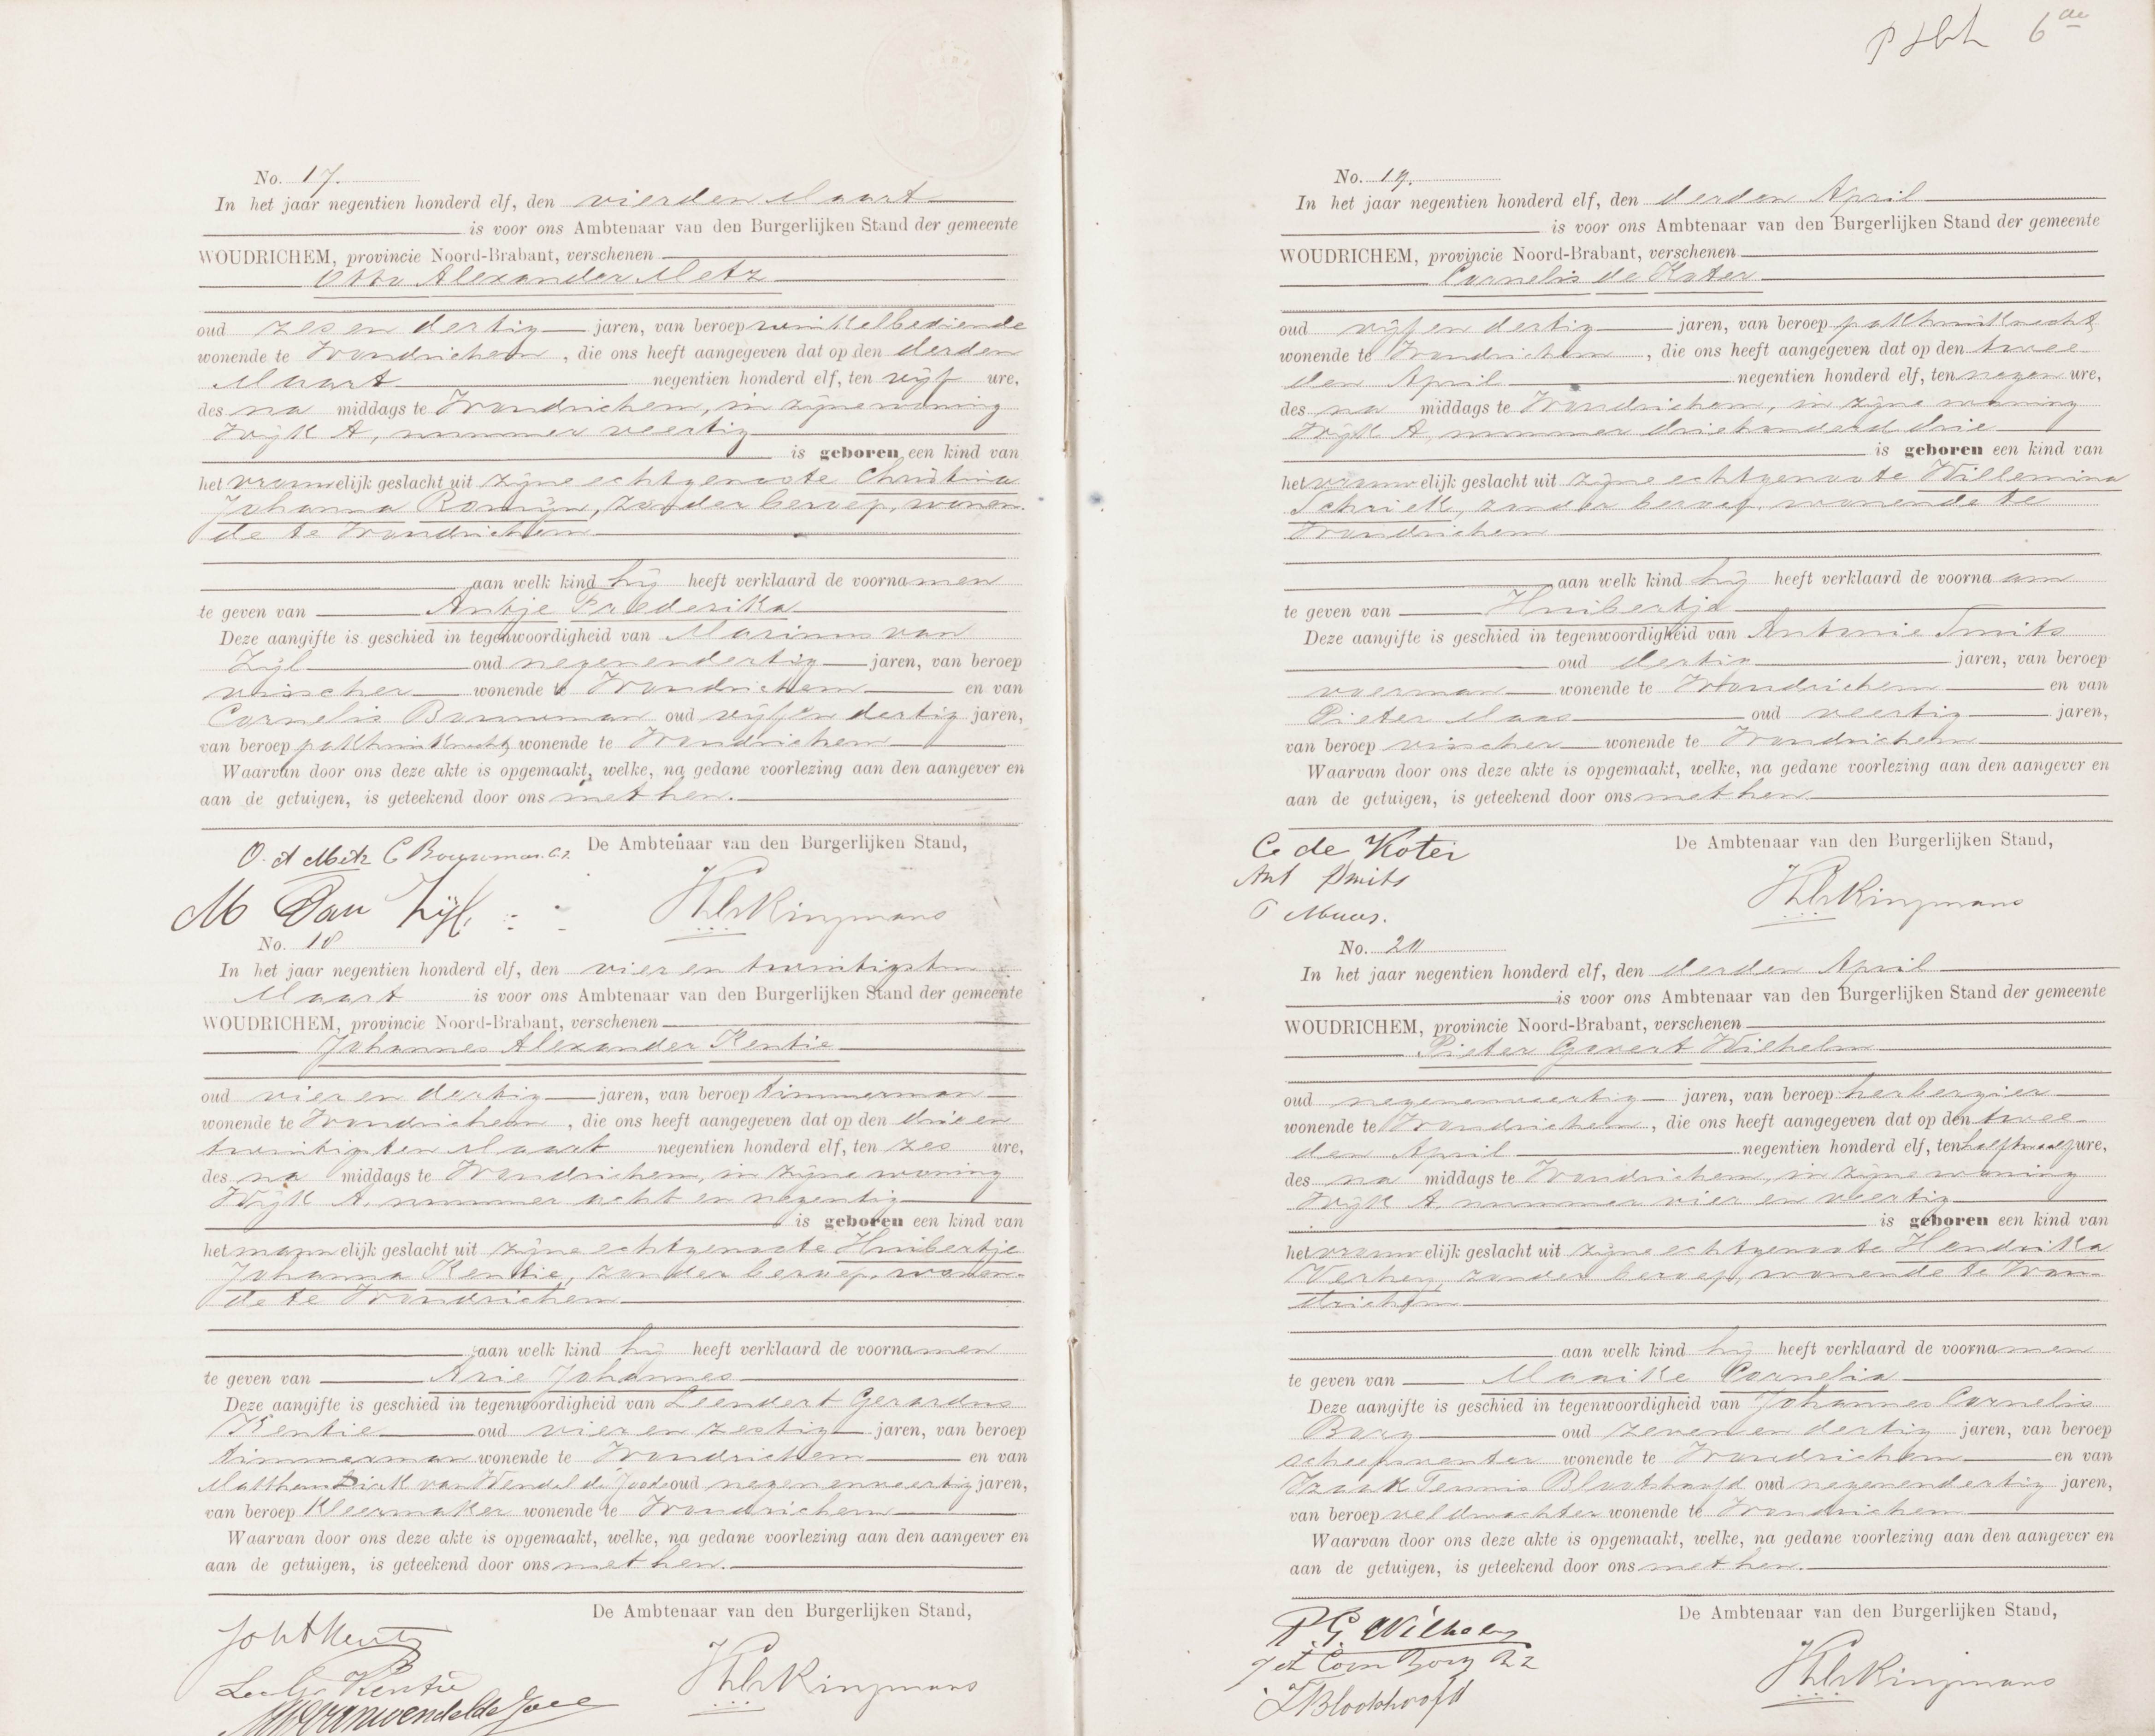 6de
No. 17.
In het jaar negentien honderd elf, den vierden Maart
is voor ons Ambtenaar van den Burgerlijken Stand der gemeente
WOUDRICHEM, provincie Noord-Brabant, verschenen
Otto Alexander Metz
oud zes en dertig jaren, van beroep winkelbediende
wonende te Woudrichem, die ons heeft aangegeven dat op den derden
Maart negentien honderd elf, ten vijf ure,
des na middags te Woudrichem, in zijne woning
Wijk A, nummer veertig
is geboren een kind van
het vrouwelijk geslacht uit zijne echtgenoote Christina
Johanna Romijn, zonder beroep, wonen-
de te Woudrichem
aan welk kind hij heeft verklaard de voornamen
te geven van Antje Frederika
Deze aangifte is geschied in tegenwoordigheid van Marinus van
Zijl oud negenendertig jaren, van beroep
visscher wonende te Woudrichem en van
Cornelis Bouwman oud vijf en dertig jaren,
van beroep pakhuisknecht, wonende te Woudrichem
Waarvan door ons deze akte is opgemaakt, welke, na gedane voorlezing aan den aangever en
aan de getuigen, is geteekend door ons met hen.
De Ambtenaar van den Burgerlijken Stand,
O. A Metz C Bouwman. Cz.
M Van Zijl.
No. 18
In het jaar negentien honderd elf, den vier en twintigsten
Maart is voor ons Ambtenaar van den Burgerlijken Stand der gemeente
WOUDRICHEM, provincie Noord-Brabant, verschenen
Johannes Alexander Kentie
oud vier en dertig jaren, van beroep timmerman
wonende te Woudrichem, die ons heeft aangegeven dat op den drie en
twintigsten Maart negentien honderd elf, ten zes ure,
des na middags te Woudrichem, in zijne woning
Wijk A, nummer acht en negentig
is geboren een kind van
het mannelijk geslacht uit zijne echtgenoote Huibertje
Johanna Kentie, zonder beroep, wonen-
de te Woudrichem
aan welk kind hij heeft verklaard de voornamen
te geven van Arie Johannes
Deze aangifte is geschied in tegenwoordigheid van Leendert Gerardus
Kentie oud vier en zestig jaren, van beroep
timmerman wonende te Woudrichem en van
van Wendel de Joode oud negen en veertig jaren,
van beroep Kleermaker wonende te Woudrichem
Waarvan door ons deze akte is opgemaakt, welke, na gedane voorlezing aan den aangever en
aan de getuigen, is geteekend door ons met hen.
De Ambtenaar van den Burgerlijken Stand,
Kentie
No. 19.
In het jaar negentien honderd elf, den derden April
is voor ons Ambtenaar van den Burgerlijken Stand der gemeente
WOUDRICHEM, provincie Noord-Brabant, verschenen
Cornelis de Koter
oud vijf en dertig jaren, van beroep pakhuisknecht
wonende te Woudrichem, die ons heeft aangegeven dat op den twee-
den April negentien honderd elf, ten negen ure,
des na middags te Woudrichem, in zijne woning
Wijk A, nummer driehonderd drie
is geboren een kind van
het vrouwelijk geslacht uit zijne echtgenoote Willemina
Schriek, zonder beroep, wonende te
Woudrichem
aan welk kind hij heeft verklaard de voornaam
te geven van Huibertje
Deze aangifte is geschied in tegenwoordigheid van Antonie Smits
oud dertig jaren, van beroep
voerman wonende te Woudrichem en van
Pieter Maas oud veertig jaren,
van beroep visscher wonende te Woudrichem
Waarvan door ons deze akte is opgemaakt, welke, na gedane voorlezing aan den aangever en
aan de getuigen, is geteekend door ons met hen
De Ambtenaar van den Burgerlijken Stand,
C de Koter
Ant Smits
No. 20
In het jaar negentien honderd elf, den derden April
is voor ons Ambtenaar van den Burgerlijken Stand der gemeente
WOUDRICHEM, provincie Noord-Brabant, verschenen
Pieter Govert Wilhelm
oud negenenveertig jaren, van beroep herbergier
wonende te Woudrichem, die ons heeft aangegeven dat op den twee-
den April negentien honderd elf, ten half twaalf ure,
des na middags te Woudrichem, in zijne woning
Wijk A, nummer vier en veertig
is geboren een kind van
het vrouwelijk geslacht uit zijne echtgenoote Hendrika
Verhey, zonder beroep, wonende te Wou-
drichem
aan welk kind hij heeft verklaard de voornamen
te geven van Maaike Cornelia
Deze aangifte is geschied in tegenwoordigheid van Johannes Cornelis
Borg oud zeven en dertig jaren, van beroep
wonende te Woudrichem en van
Izaak Teunis Blookhoofd oud negenendertig jaren,
van beroep veldwachter wonende te Woudrichem
Waarvan door ons deze akte is opgemaakt, welke, na gedane voorlezing aan den aangever en
aan de getuigen, is geteekend door ons met hen.
De Ambtenaar van den Burgerlijken Stand,
P. G. Wilhelm